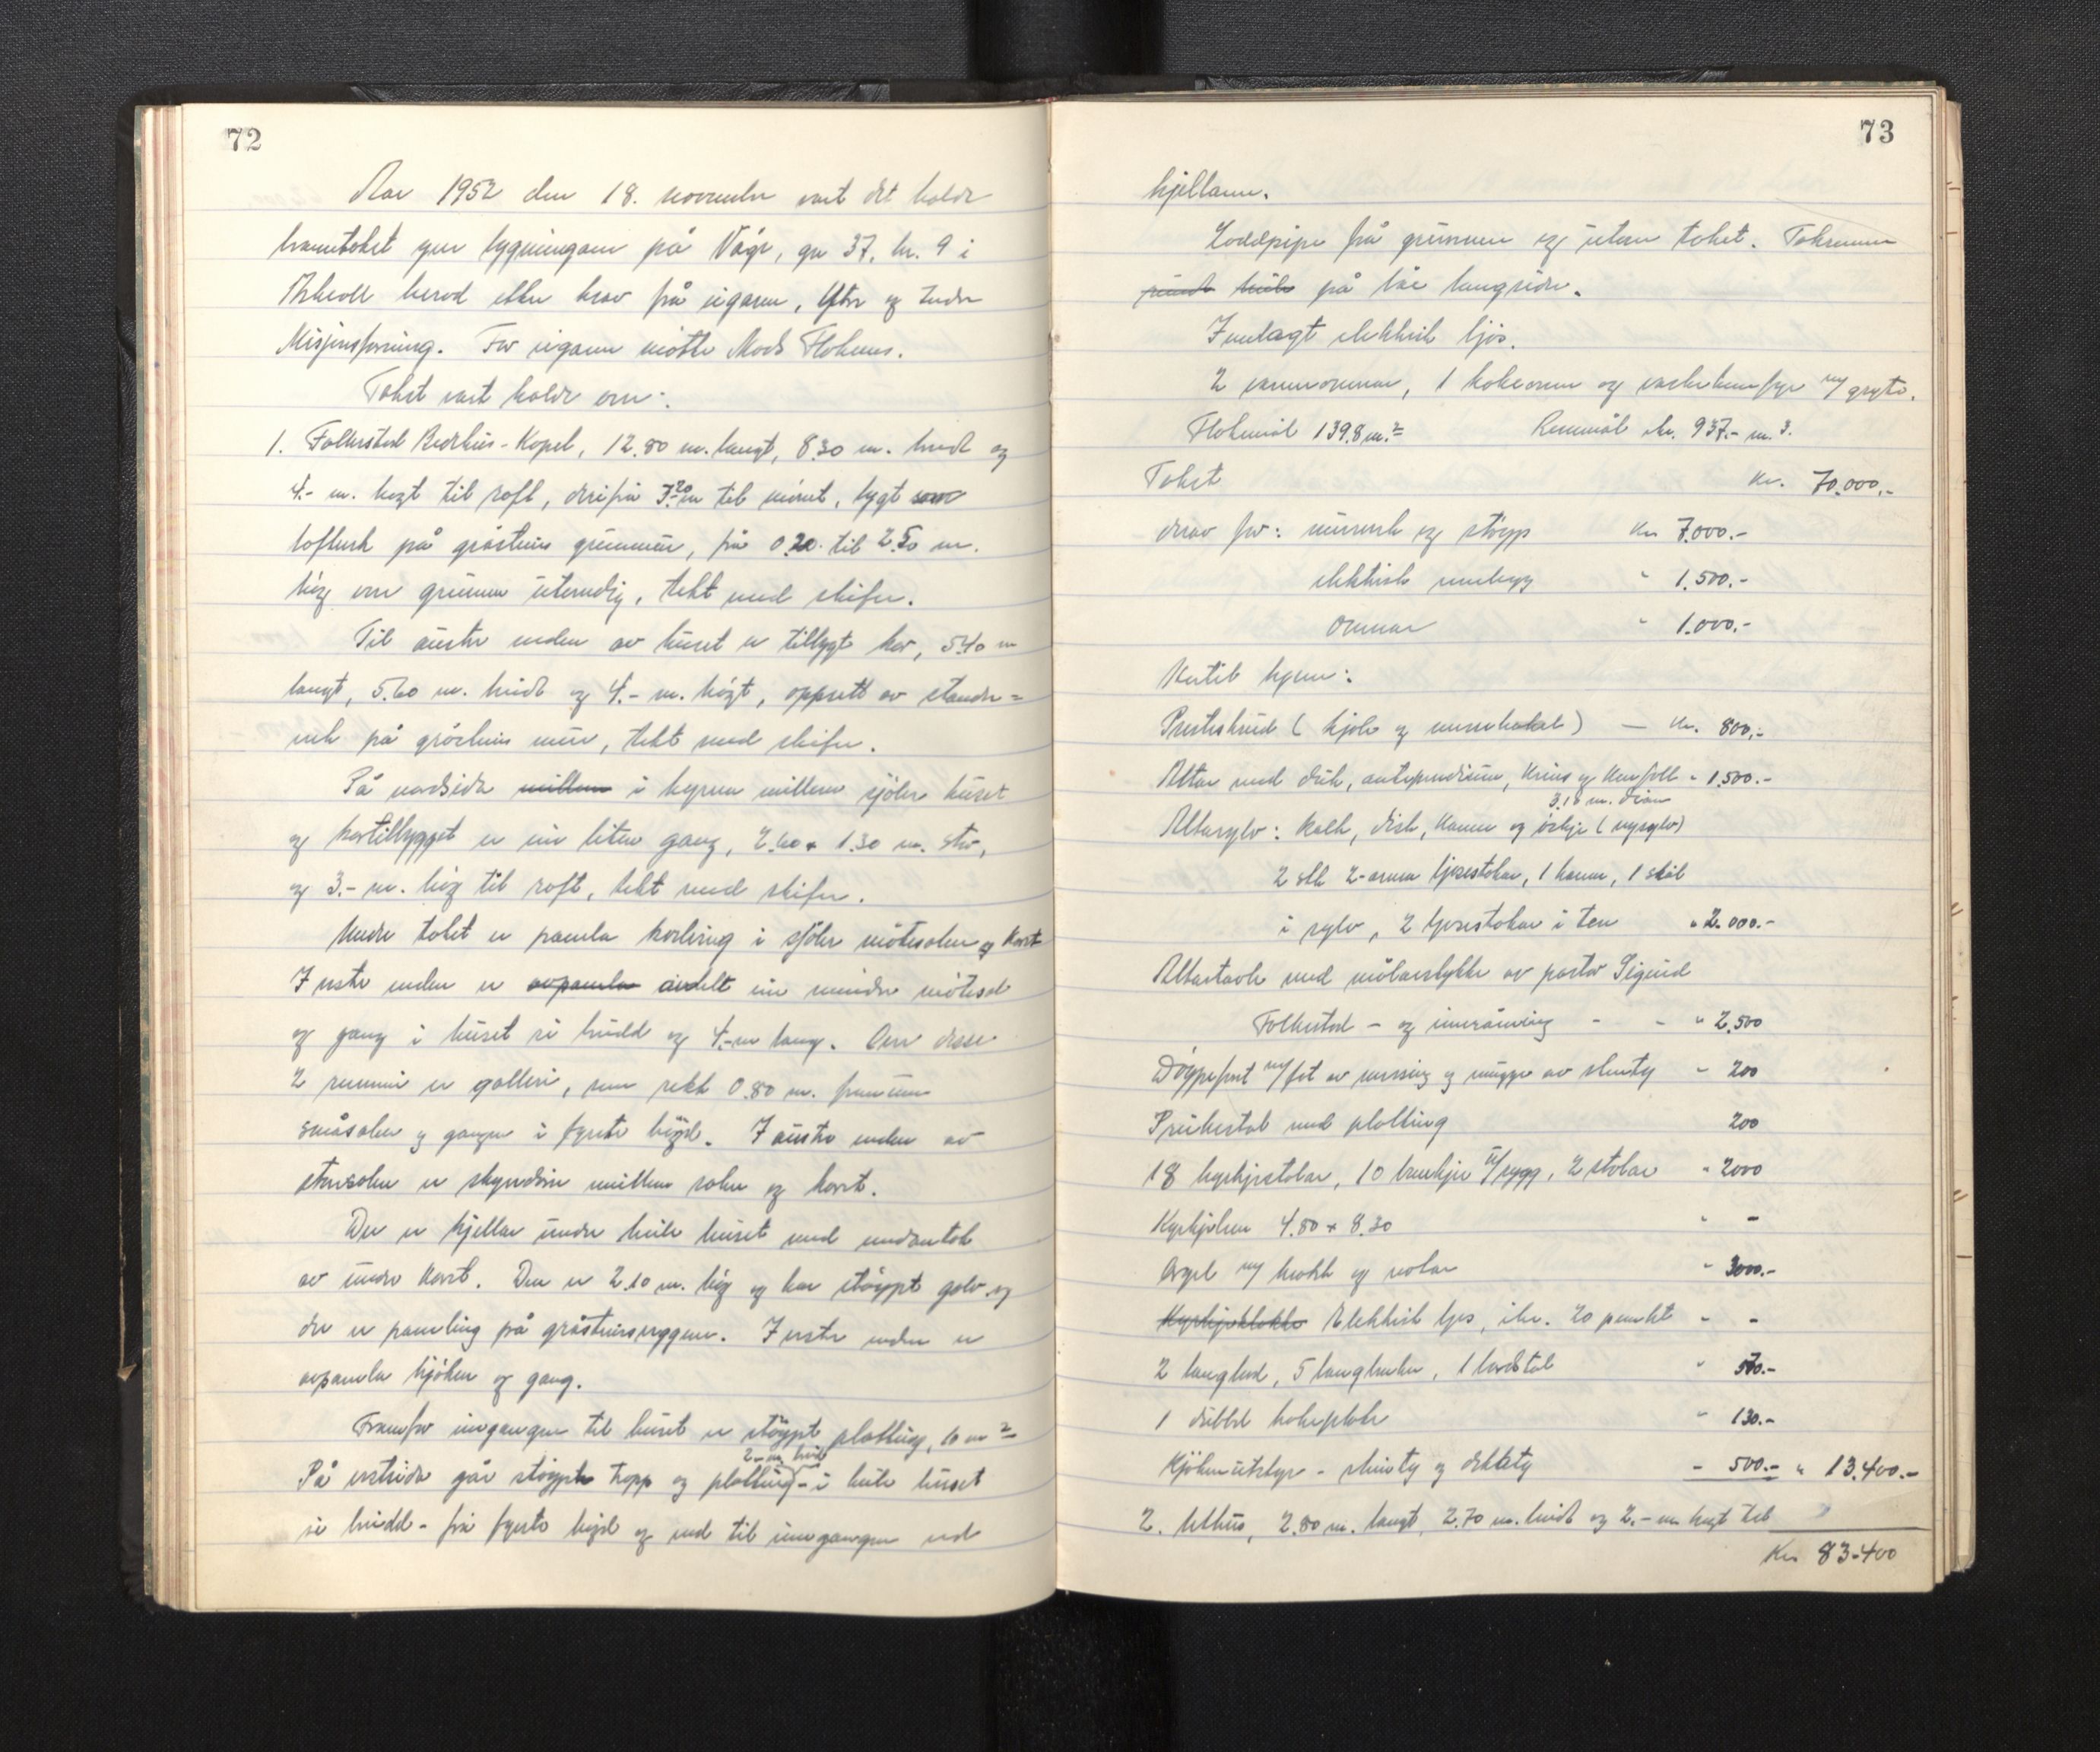 72
Aar 1952 den 18. november vart det halde
branntakst yver bygningane på Vågr, gn 37, br. 9 i
Askvoll herad etter krav frå eigaren, Ytre og Indre
Misjonsforening. For eigaren møtte Mads Flokenes.
Takst vart halde over:
1. Folkestad Bedehus-Kapel, 12.80 m. langt, 8.30 m. breidt og
4.- m. høgt til roft, derifrå 3.20 m til mønet, bygt som
loftverk på gråsteins grunnmur, frå 0.20 til 2.50 m.
høg over grunnen utvendig, tekt med skifer.
Til austre enden av huset er tilbygt kor, 5.40 m
langt, 5.60 m. breidt og 4.- m. høgt, oppsett av stender=
verk på gråsteins mur, tekt med skifer.
På nordsida millom i kynna millom sjølve huset
og kortilbygget er ein liten gang, 2.60 x 1.30 m. stor,
og 3.- m. høg til roft, tekt med skifer.
Under taket er panela kvelving i sjølve møtesalen og koret
I vestre enden er avpanela avdelt ein mindre møtesal
og gang i huset si breidd og 4.- m lang. Over desse
2 rummi er galleri, som rekk 0.80 m. framum
småsalen og gangen i fyrste høgd. I austre enden av
storsalen er skyvedører millom salen og koret.
Der er kjellar under heile huset med undantak
av under koret. Den er 2.10 m. høg og har støypt golv og
der er paneling på gråsteinsveggene. I vestre enden er
avpanela kjøken og gang.
Framfor inngangen til huset er støypt platting, 10 m²
2.- m. breid
På vestsida går støypte trapp og platting - i heile huset
si breidd - frå fyrste høgd og ned til inngangen ved
73
kjellaren.
Loddpipe frå grunnen og utover taket. Takrenner
rundt heile på båe langsider.
Innlagt elektrisk ljos.
2 varmeomnar, 1 kokeomn og vaskekumfyr m/ gryte.
Flatemål 139.8 m.² Rummål ca. 937.- m.³.
Takst kr. 70.000.-
derav for: murverk og støyp kr 7.000.-
elektrisk innlegg " 1.500.-
omnar " 1.000.-
Kortil kjem:
Presteskrud (kjole og messehakel) — kr. 800.-
Altar med duk, antependium, krus og knefall " 1.500.-
3.10 m. diam
Altarsylv: kalk, disk, kanne og øskje (nysylv)
2 stk 2-arma ljosestakar, 1 kanne, 1 skål
i sylv, 2 ljosestakar i tenn " 2.000.-
Altartavle med målarstykke av pastor Sigurd
Folkestad - og innråming - - " 2.500
Døypefont m/ fat av messing og mugge av steinty - 200
Preikestol med platting 200
18 kyrkjestolar, 10 benkjer u/ rygg, 2 stolar " 2000
Kyrkjeloen 4.80 x 8.30 " -
Orgel m/ krakk og notar " 3000.-
Kyrkjeklokke Elektrisk ljos, ikr. 20 punkt - -
2 langbord, 5 langbenker, 1 bordstol " 570.-
1 dubbel kokeplate " 130.-
Kjøkenutstyr - steinty og dekkety - 500.- " 13.400.-
2. Uthus, 2.80 m. langt, 2.70 m. breidt og 2.- m høgt til
Kr 83.400